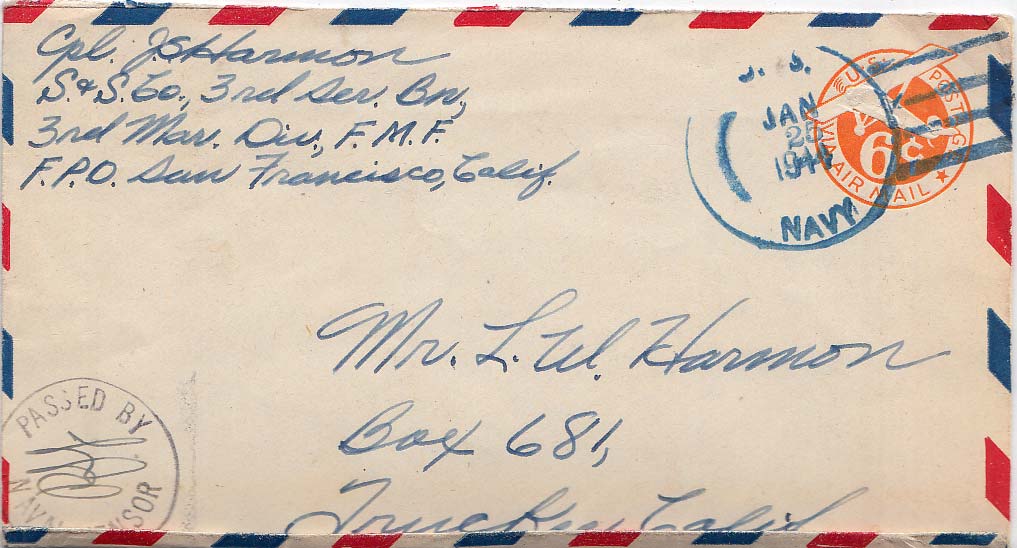 Cpl. J.S. Harmon
S. & S. Co., 3rd Ser. Bn.,
3rd Mar. Div., F.M.F.
F.P.O. San Francisco, Calif.
U. S.
JAN
25
1944
NAVY
U.S. POSTAGE
6c
VIA AIR MAIL
Mr. L. W. Harmon
Box 681,
Truckee Calif
PASSED BY
NAVAL CENSOR